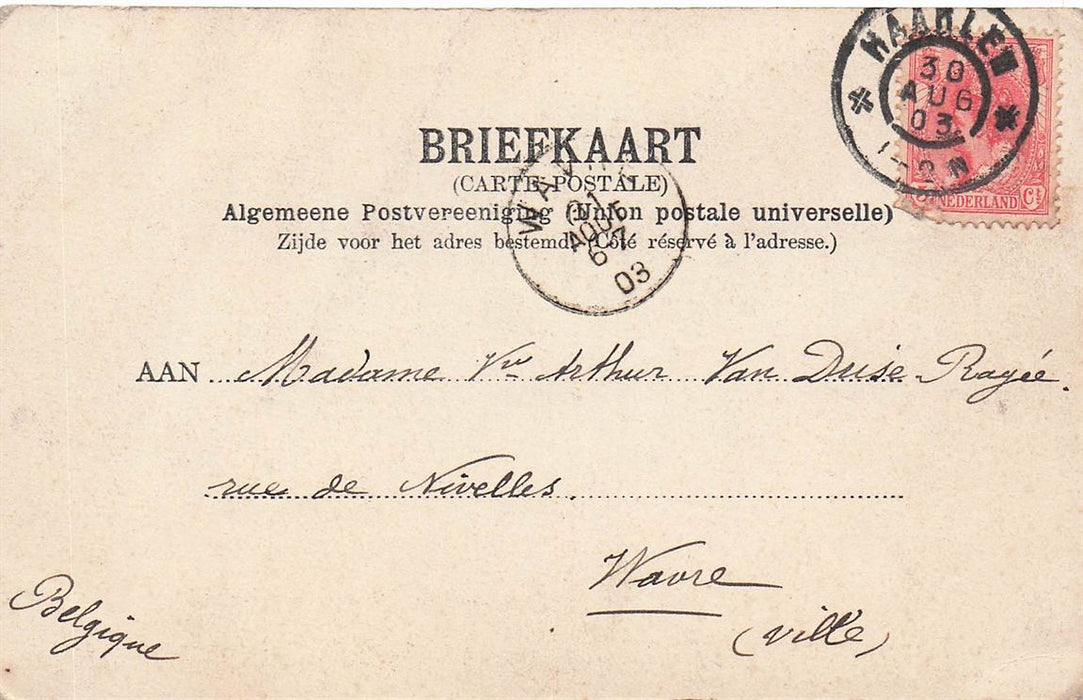 HAARLEM
30
AUG
03
1-2 N
NEDERLAND Ct
BRIEFKAART
(CARTE POSTALE)
Algemeene Postvereeniging (Union postale universelle)
Zijde voor het adres bestemd. (Côté réservé à l'adresse.)
AOUT
03
AAN Madame Vve Arthur Van Duise-Ragée.
rue de Nivelles.
Wavre
(ville)
Belgique